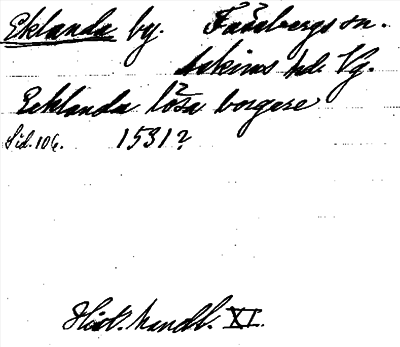 Eklanda by. Fässbergs sn.
Askims hd. Vg.
Ecklanda löza borgare
Sid. 106. 1531?
Hist. handl. XI.